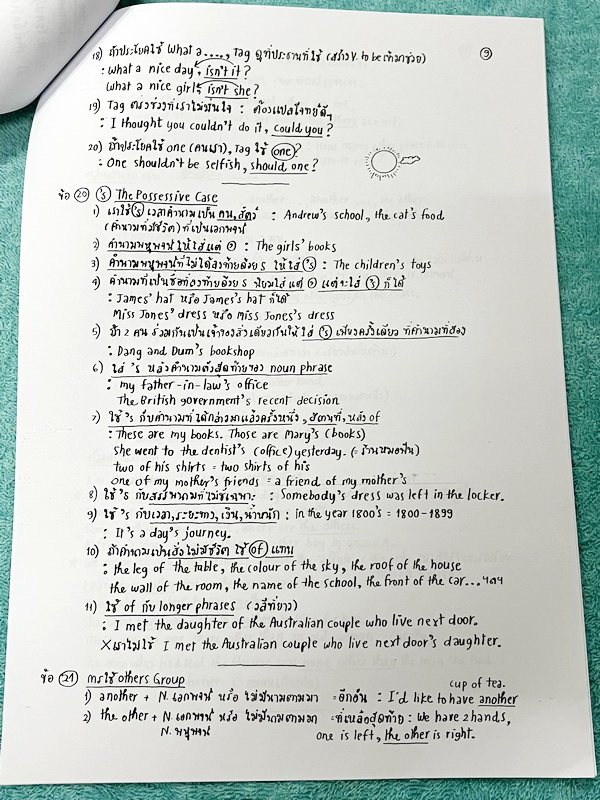 18) ถ้าประโยคใช้ What a...., Tag ดูที่ประธานที่ใช้ (สร้าง V. to be เข้ามาช่วย) 9
: What a nice day, isn't it?
What a nice girl, isn't she?
19) Tag ตรงช่วงที่เราไม่มั่นใจ : ต้องแปลโจทย์ดีๆ
: I thought you couldn't do it, could you?
20) ถ้าประโยคใช้ one (คนเรา), Tag ใช้ one?
: One shouldn't be selfish, should one?
ข้อ 20 's The Possessive Case
1) เราใช้ 's เวลาคำนามเป็น คน, สัตว์ : Andrew's school, the cat's food
(คำนามที่มีชีวิต) ที่เป็นเอกพจน์
2) คำนามพหูพจน์ให้ใส่แค่ ' : The girls' books
3) คำนามพหูพจน์ที่ไม่ได้ลงท้ายด้วย s ให้ใส่ 's : The children's toys
4) คำนามที่เป็นชื่อที่ลงท้ายด้วย s นิยมใส่แค่ ' แต่จะใส่ 's ก็ได้
: James' hat หรือ James's hat ก็ได้
Miss Jones' dress หรือ Miss Jones's dress
5) ถ้า 2 คน ร่วมกันเป็นเจ้าของสิ่งเดียวกันให้ใส่ 's เพียงครั้งเดียว ที่คำนามที่สอง
: Dang and Dum's bookshop
6) ใส่ 's หลังคำนามตัวสุดท้ายของ noun phrase
: my father-in-law's office
The British government's recent decision
7) ใช้ 's กับคำนามที่ได้กล่าวมาแล้วครั้งหนึ่ง, สถานที่, หลัง of
: These are my books. Those are Mary's (books)
She went to the dentist's (office) yesterday. (= ร้านหมอฟัน)
two of his shirts = two shirts of his
one of my mother's friends = a friend of my mother's
8) ใช้ 's กับสรรพนามที่ไม่ชี้เฉพาะ : Somebody's dress was left in the locker.
9) ใช้ 's กับเวลา, ระยะทาง, เงิน, น้ำหนัก : in the year 1800's = 1800-1899
: It's a day's journey.
10) ถ้าคำนามเป็นสิ่งไม่มีชีวิต ใช้ of แทน
: the leg of the table, the colour of the sky, the roof of the house
the wall of the room, the name of the school, the front of the car... ฯลฯ
11) ใช้ of กับ longer phrases (วลีที่ยาว)
: I met the daughter of the Australian couple who live next door.
X เราไม่ใช้ I met the Australian couple who live next door's daughter.
ข้อ 21 การใช้ others Group
1) another + N. เอกพจน์ หรือ ไม่มีนามตามมา = อีกอัน : I'd like to have another cup of tea.
2) the other + N. เอกพจน์ หรือ ไม่มีนามตามมา = ที่เหลือสุดท้าย : We have 2 hands,
N. พหูพจน์ one is left, the other is right.